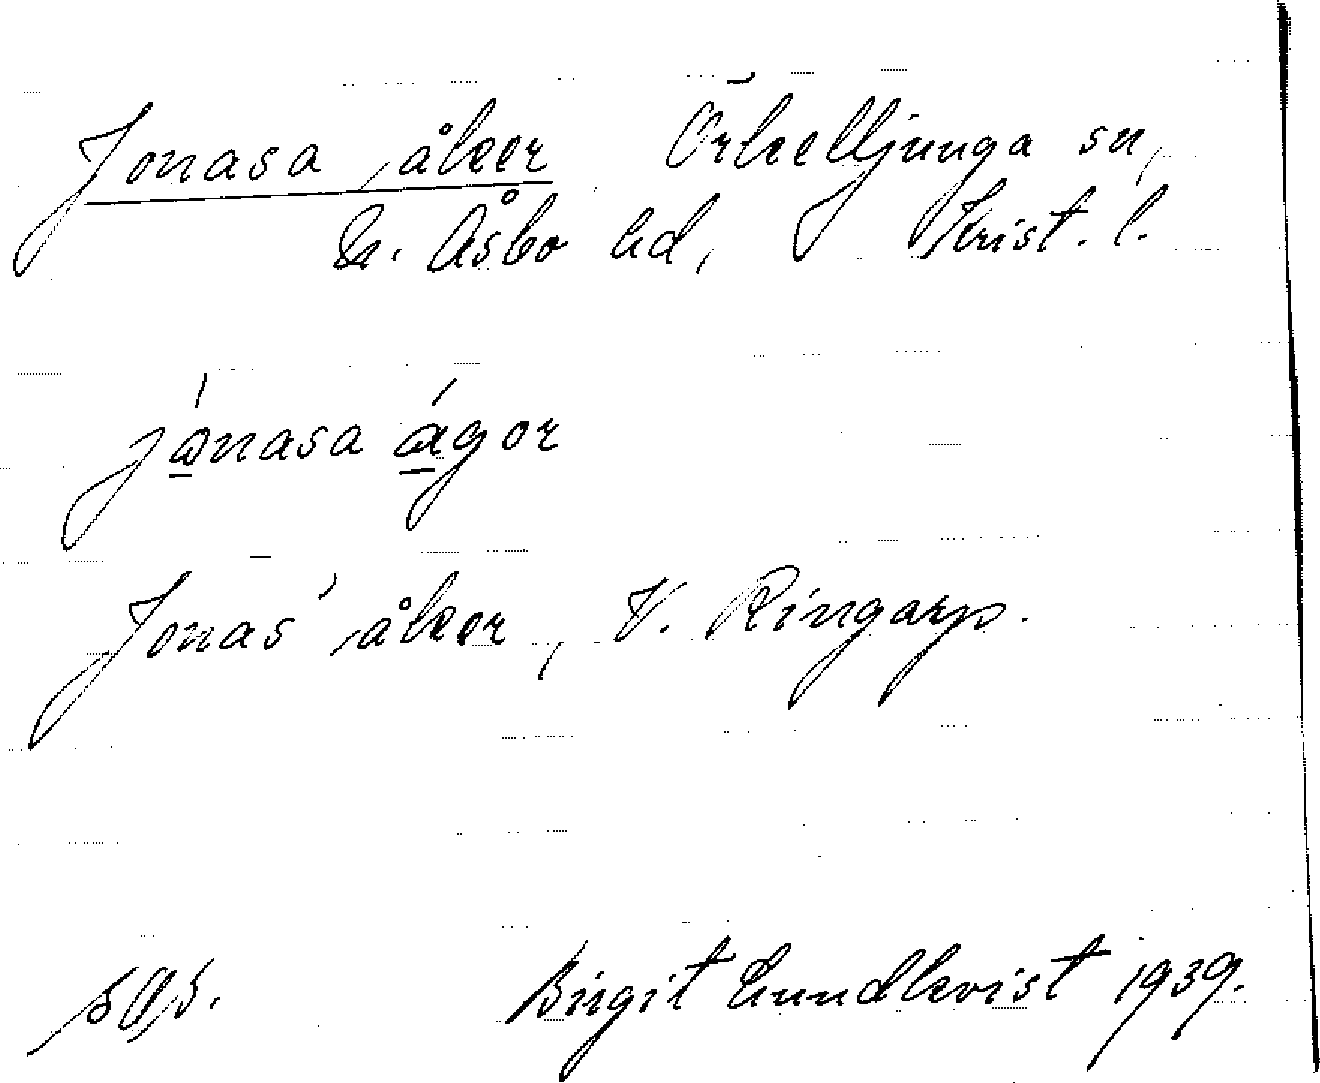 Jonasa åker Örkelljunga sn,
N. Åsbo hd, Krist. l.
jånasa ågor
Jonas' åker, V. Ringarp.
Birgit Lundkvist 1939.